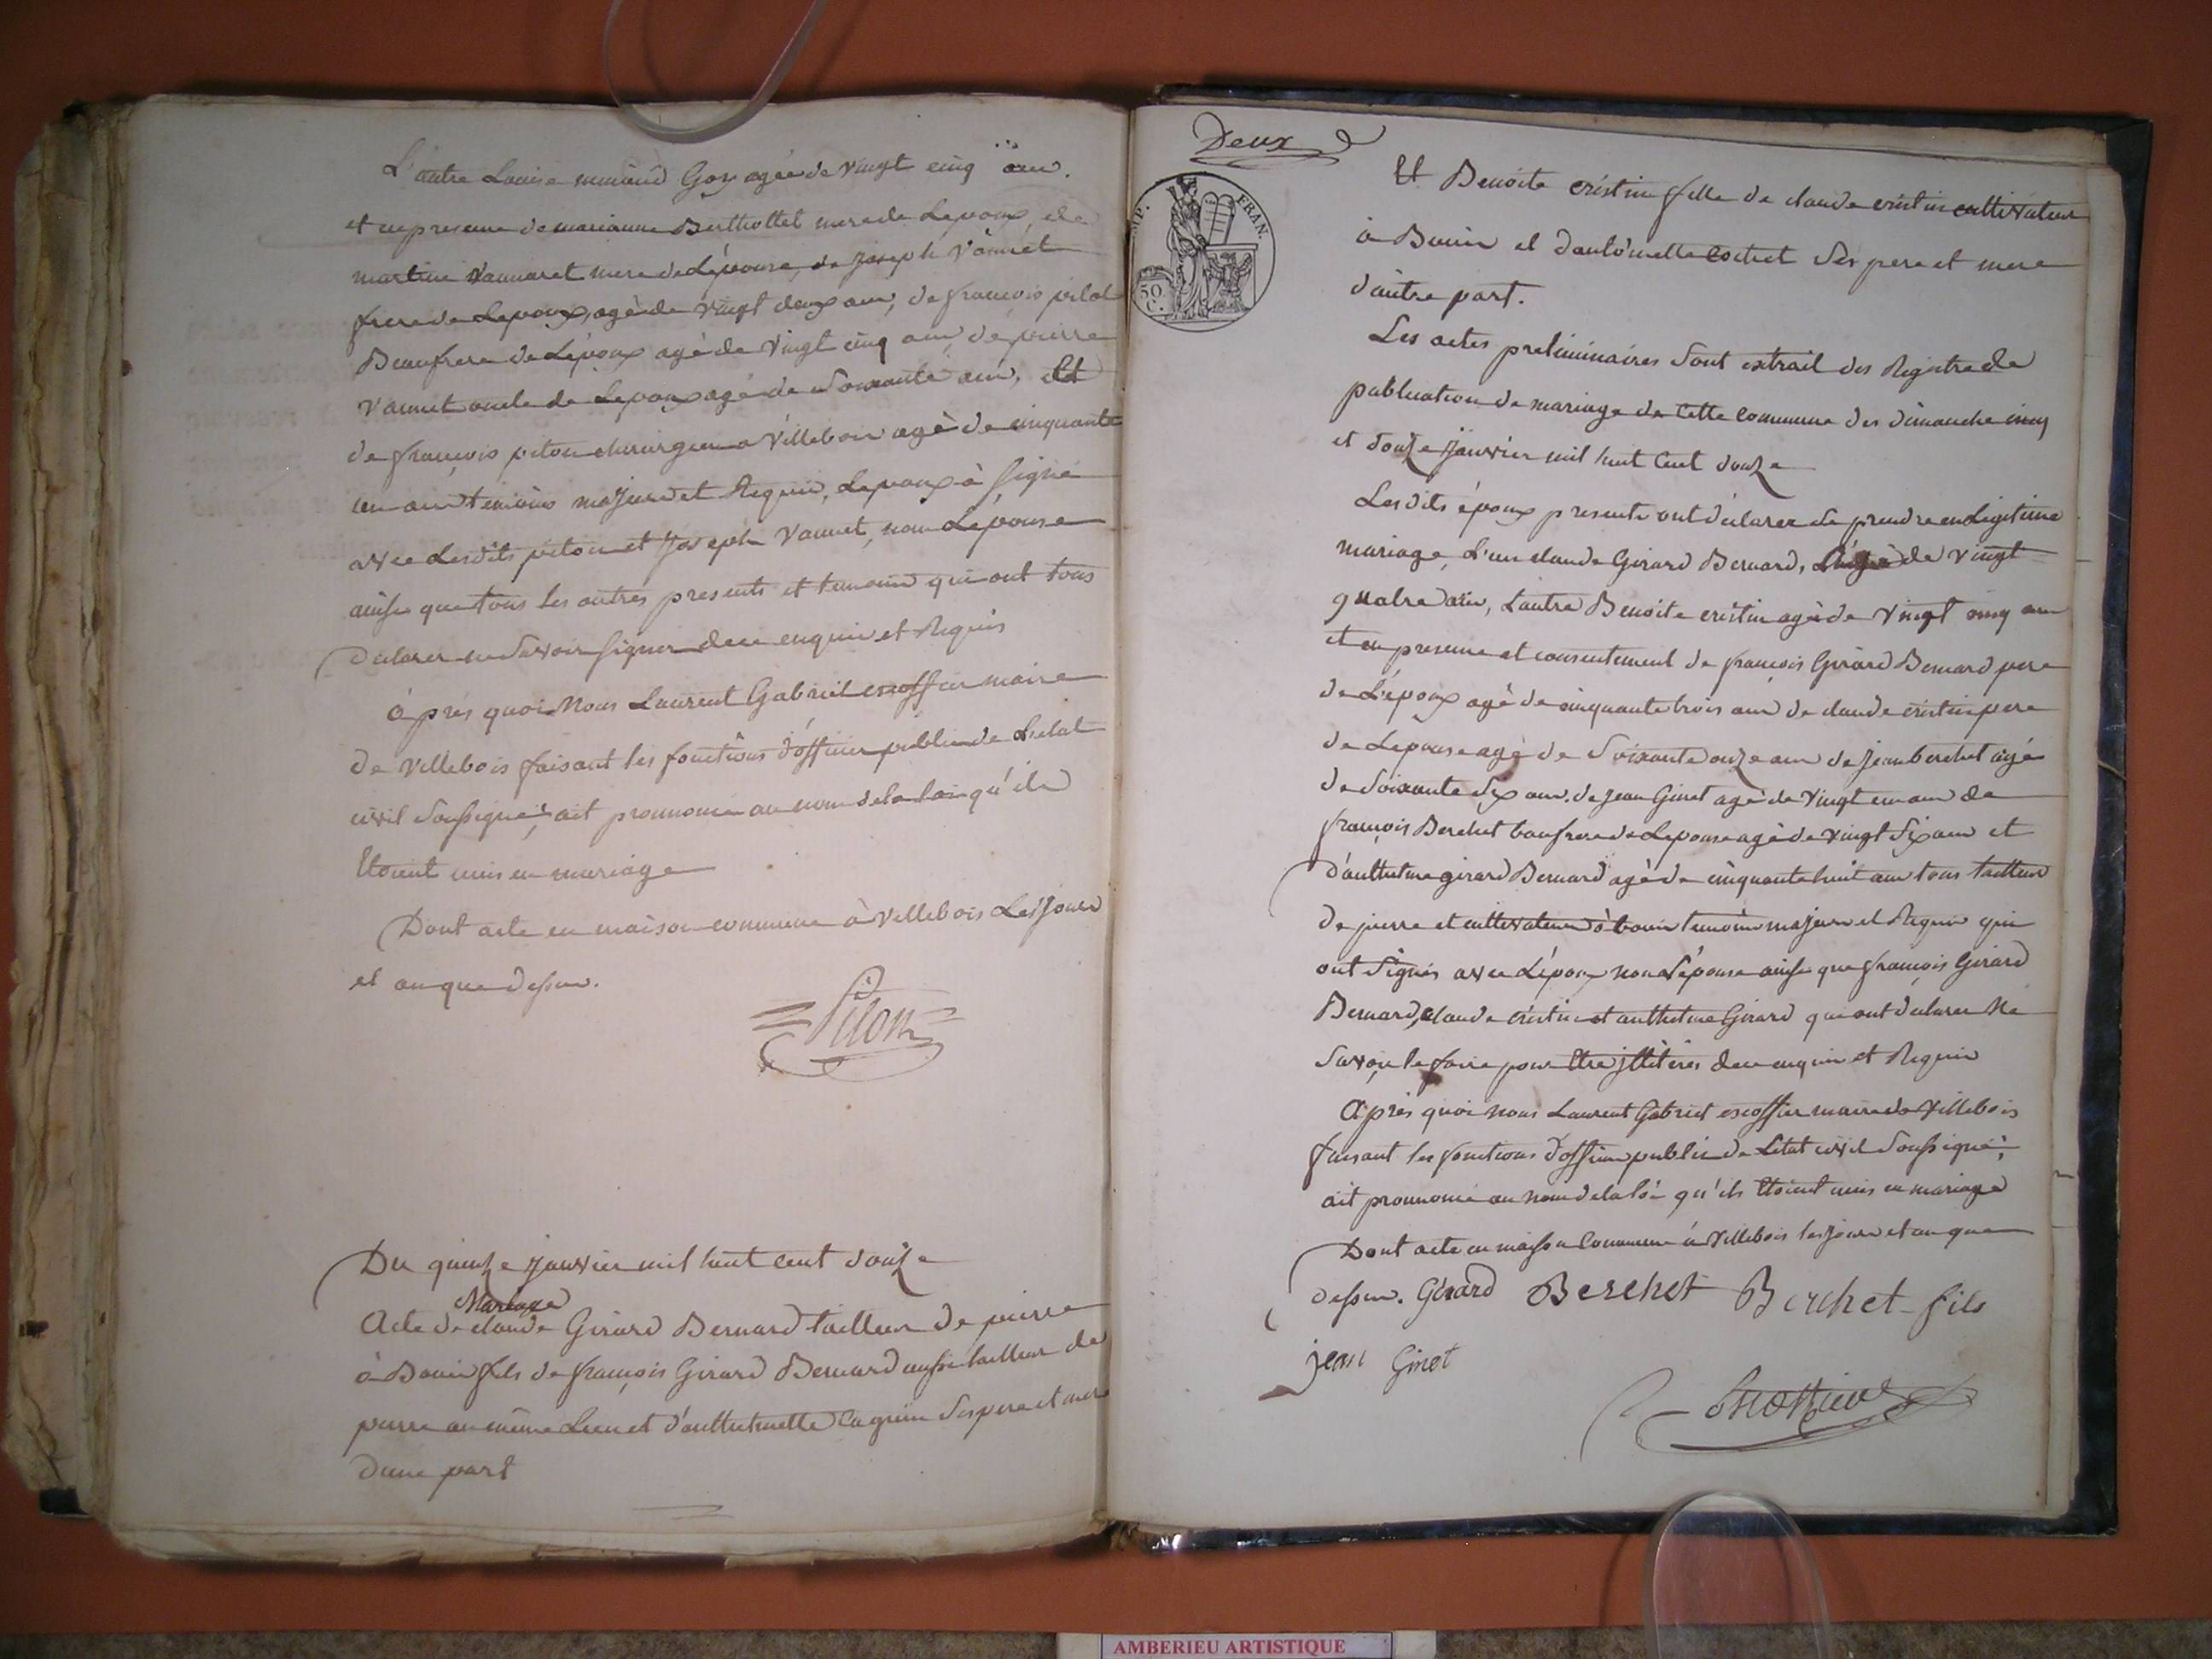 L'autre Louise Goy agée de vingt cinq ans.
et en presence de marianne Berthollet mere de Lepoux, de
martine vannaret mere de Lépouse, de joseph vannet
frere de Lepoux, agé de vingt deux ans, de françois pilot
Beaufrere de Lépoux agé de vingt cinq ans, de pierre
vannet oncle de Lepoux agé de soixante ans, Et
de françois piton chirurgien a villebois agé de cinquante
un ans temoins majeurs et Requis, Lepoux à signé
avec Lesdits piton et joseph vannet, non Lepouse
ainsi que tous les autres presents et temoins qui ont tous
declarer ne savoir signer de ce enquis et Requis
après quoi Nous Laurent Gabriel escoffier maire
de villebois faisant les fonctions d'officier public de Letat
civil soussigné, ait prononcé au nom de la loi qu'ils
Etoient unis en mariage
Dont acte en maison commune à villebois Les jour
et an que dessus.
Piton
Du quinze janvier mil huit cent douze
Mariage
Acte de claude Girard Bernard tailleur de pierre
à Bouis fils de françois Girard Bernard aussi tailleur de
pierre au même Lieu et d'anthelmette ses pere et mere
d'une part
Deux
IMP. FRAN.
50 C.
Et Benoite cristin fille de claude cristin cultivateur
à Bouis et d'antoinette cochet ses pere et mere
d'autre part.
Les actes preliminaires sont extrait des Registre de
publication de mariage de cette commune des dimanche cinq
et douze janvier mil huit cent douze
Lesdits époux presents ont declarer se prendre en Legitime
mariage, L'un claude Girard Bernard, agé de vingt
quatre ans, L'autre Benoite cristin agée de vingt cinq ans
et en presence et consentement de françois Girard Bernard pere
de L'époux agé de cinquante trois ans de claude cristin pere
de Lepouse agé de soixante onze ans de jean berchet agé
de soixante six ans. de jean Ginet agé de vingt un ans de
françois Berchet beaufrere de Lepouse agé de vingt six ans et
d'anthelme girard Bernard agé de cinquante huit ans tous tailleurs
de pierre et cultivateurs à bouis temoins majeurs et Requis qui
ont signés avec L'époux non L'épouse ainsi que françois Girard
Bernard, claude cristin et anthelme Girard qui ont declarer Ne
savoir le faire pour Etre jllitérés de ce enquis et Requis
Après quoi nous Laurent Gabriel escoffier maire de villebois
faisant les fonctions d'officier public de Létat civil soussigné,
ait prononcé au nom de la loi qu'ils Etoient unis en mariage
Dont acte en maison Commune à Villebois les jour et an que
dessus. Girard Berchet Berchet fils
jean Ginet
Escoffier
AMBERIEU ARTISTIQUE